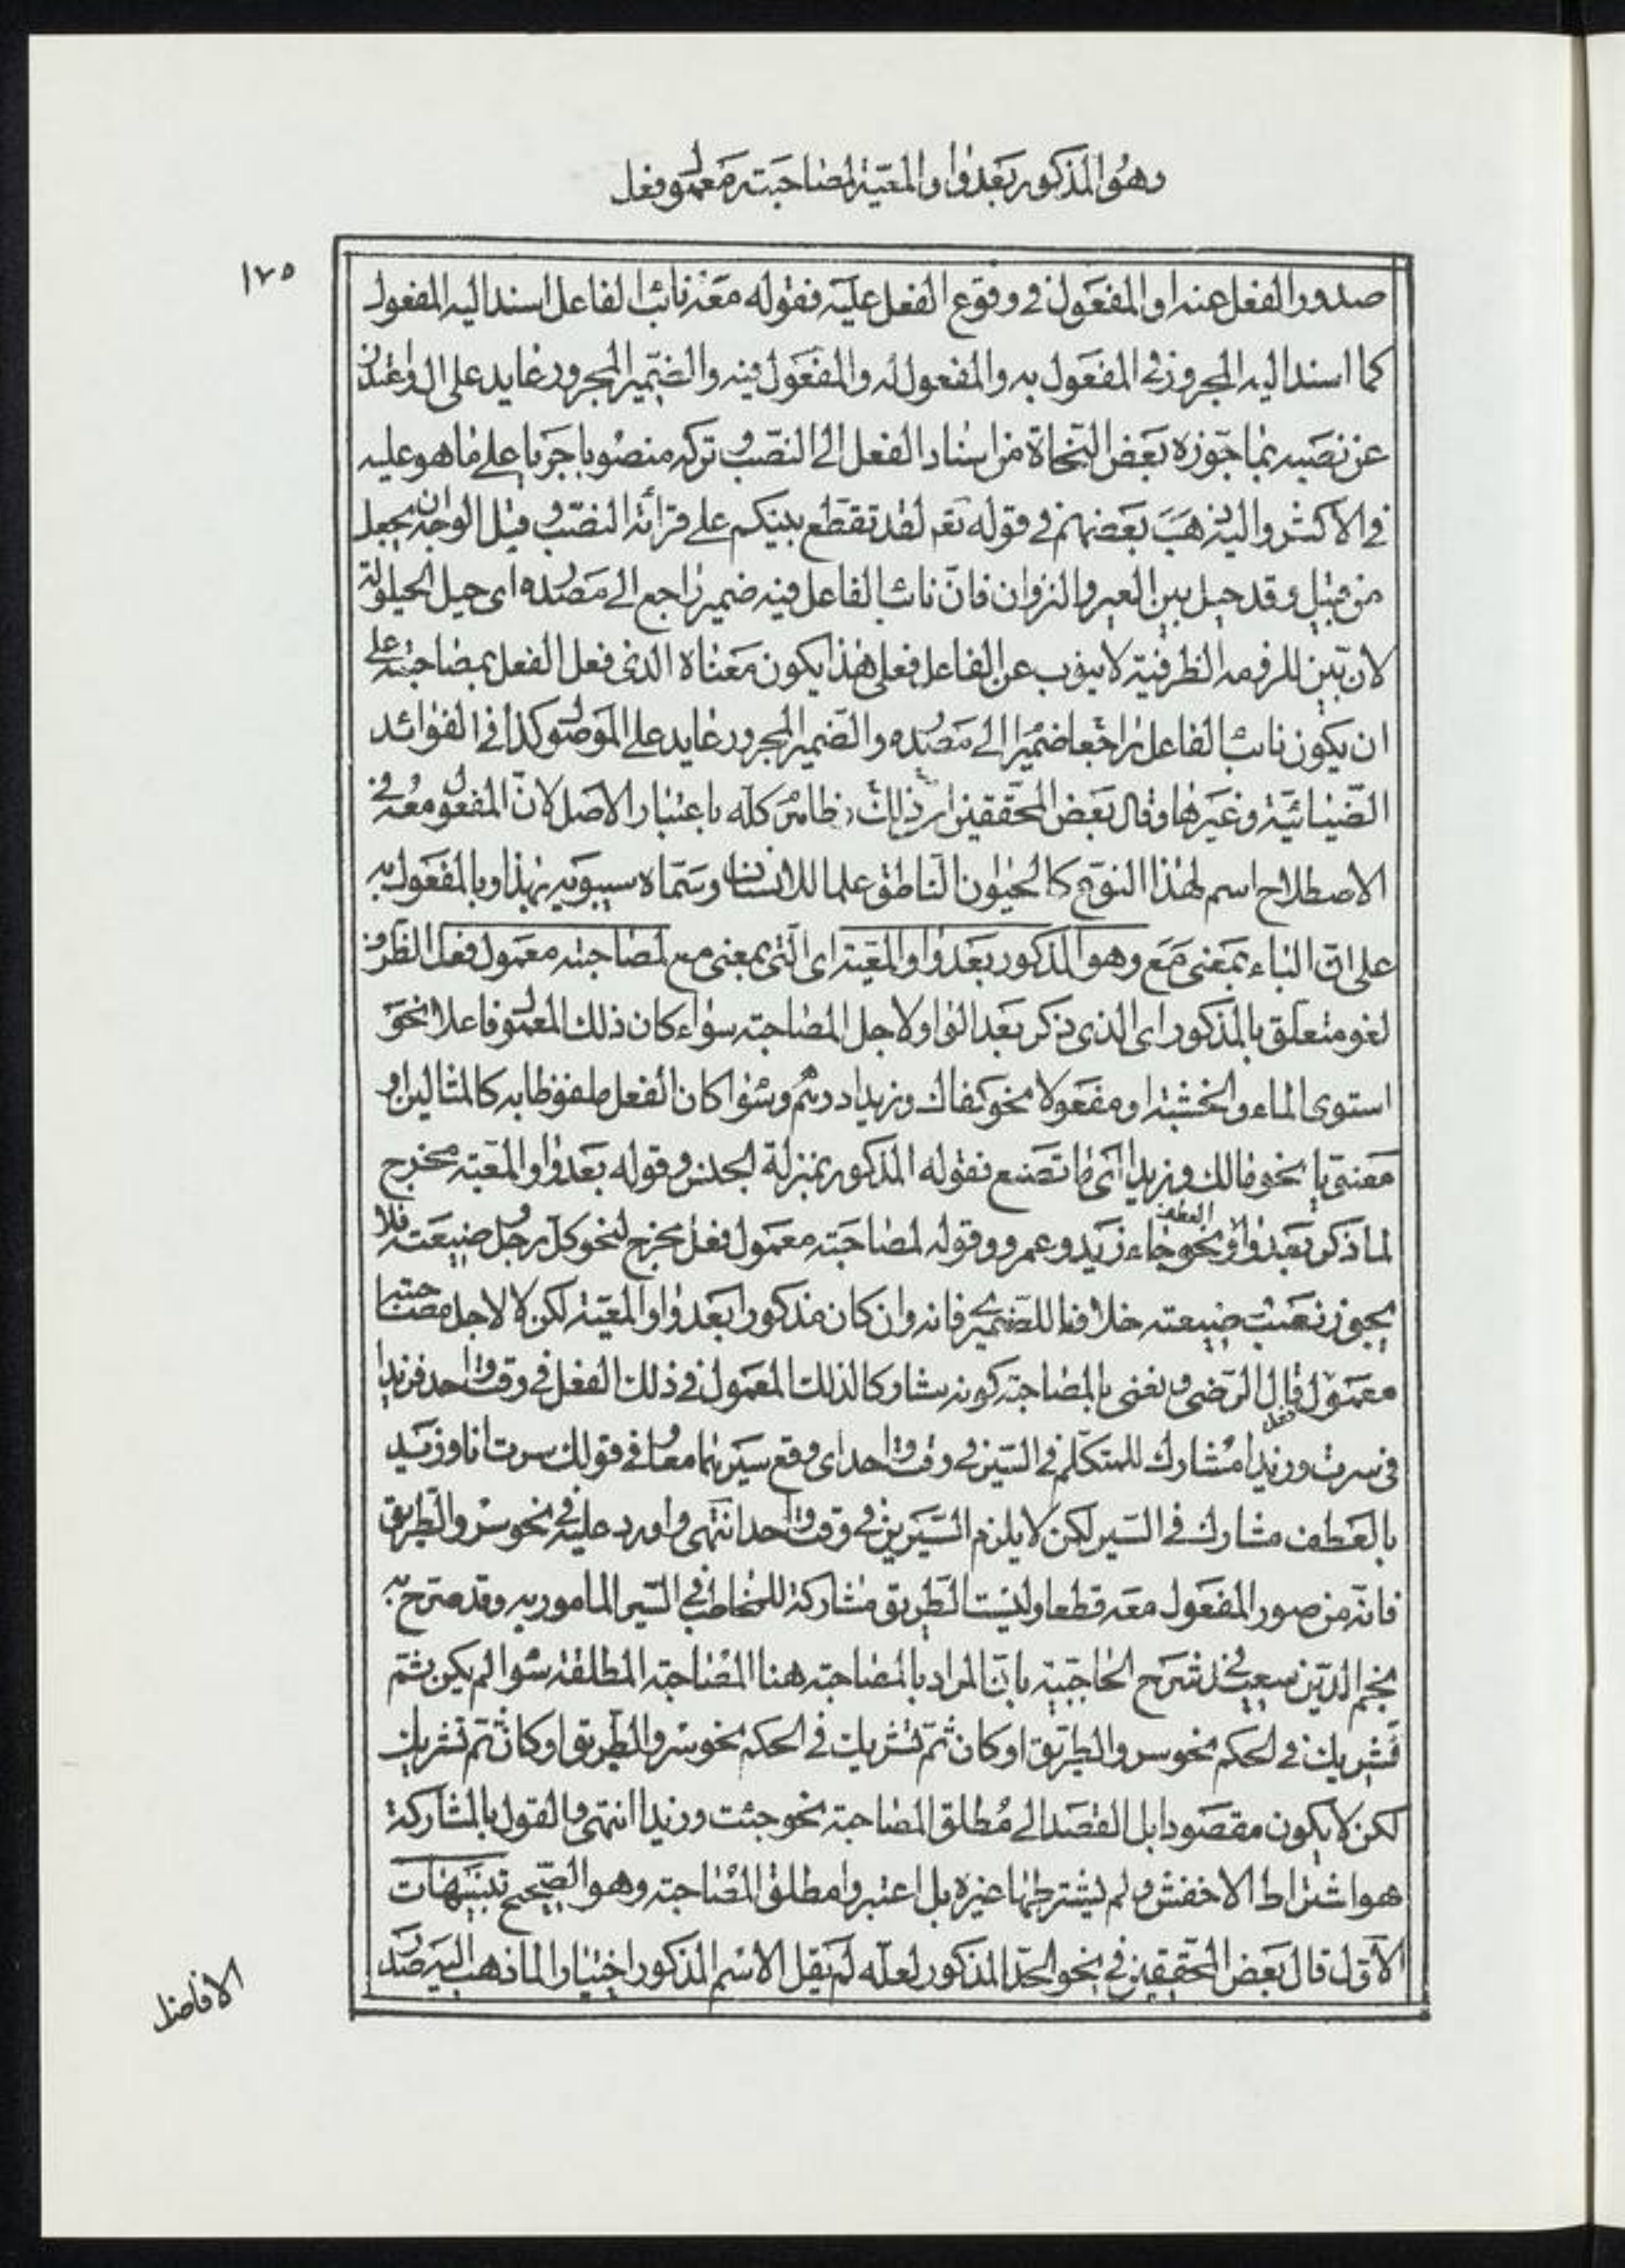 وهو المذكور بعد واو المعية لمصاحبته معمول فعل
١٧٥
صدور الفعل عنه او المفعول في وقوع الفعل عليه فقوله معه نائب الفاعل اسند اليه المفعول
كما اسند اليه المجرور في المفعول به والمفعول له والمفعول فيه والضمير المجرور عايد على ال واعتذر
عن نصبه بما جوزه بعض النحاة من اسناد الفعل الى النصب وتركه منصوبا جريا على ما هو عليه
في الاكثر واليه ذهب بعضهم في قوله تعم لقد تقطع بينكم على قرائة النصب وقيل الوجه ان يجعل
من قبيل وقد حيل بين العير والنزوان فان نائب الفاعل فيه ضمير راجع الى مصدره اى حيل الحيلولة
لان بين للزومه الظرفية لا ينوب عن الفاعل فعلى هذا يكون معناه الذى فعل الفعل بمصاحبته على
ان يكون نائب الفاعل راجعا ضميرا الى مصدره والضمير المجرور عايد على الموصول كذا في الفوائد
الضيائية وغيرها وقال بعض المحققين ان ذلك كله باعتبار الاصل لان المفعول معه في
الاصطلاح اسم لهذا النوع كالحيوان الناطق علما للانسان وسماه سيبويه بهذا وبالمفعول به
على ان الباء بمعنى مع وهو المذكور بعد واو المعية اى التى بمعنى مع لمصاحبته معمول فعل الظرف
لغو متعلق بالمذكور اى الذى ذكر بعد الواو لاجل المصاحبته سواء كان ذلك المعمول فاعلا نحو
استوى الماء والخشبة او مفعولا نحو كفاك وزيدا درهم وسوا كان الفعل ملفوظا به كالمثالين او
معنويا نحو مالك وزيدا اى ما تصنع فقوله المذكور بمنزلة الجنس وقوله بعد واو المعية مخرج
لما ذكر بعد واو العطف نحو جاء زيد وعمرو وقوله لمصاحبته معمول فعل مخرج لنحو كل رجل وضيعته فلا
يجوز نصب ضيعته خلافا للصيمرى فانه وان كان مذكورا بعد واو المعية لكن لا لاجل مصاحبته
معمول فعل قال الرضى ونعنى بالمصاحبة كونه مشاركا لذلك المعمول في ذلك الفعل في وقت واحد فزيدا
في سرت وزيدا مشارك للمتكلم في السير في وقت واحد اى وقع سيرهما معا و في قولك سرت انا وزيد
بالعطف مشارك في السير لكن لا يلزم السيرين في وقت واحد انتهى واورد عليه في نحو سر والطريق
فانه من صور المفعول معه قطعا وليست الطريق مشاركة للمخاطب في السير المامور به وقد صرح به
نجم الدين سعيد في شرح الحاجبية بان المراد بالمصاحبة هنا المصاحبة المطلقة سوا لم يكن ثم
تشريك في الحكم نحو سر والطريق او كان ثم تشريك في الحكم نحو سر والطريق او كان ثم تشريك
لكن لا يكون مقصودا بل القصد الى مطلق المصاحبة نحو جئت وزيدا انتهى والقول بالمشاركة
هو اشتراط الاخفش ولم يشترطها غيره بل اعتبروا مطلق المصاحبة وهو الصحيح تنبيهات
الاول قال بعض المحققين في نحو الحد المذكور لعله لم يقل الاسم المذكور اختيارا لما ذهب اليه صدر
الافاضل